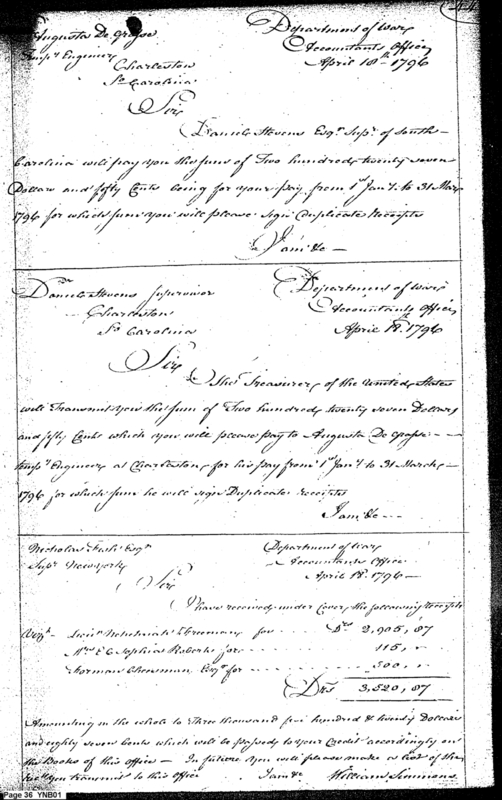 44
Augusta De Grasse
Temp.y Engineer
Charleston
So Carolina
Department of War
Accountants Office
April 18th 1796
Sir
Daniel Stevens Esqr. Supr. of South
Carolina will pay you the sum of Two hundred twenty seven
Dollars and fifty Cents being for your pay from 1st Jany. to 31 March
1796 for which sum you will please sign Duplicate Receipts
I am &c
Daniel Stevens Supervisor
Charleston
So Carolina
Department of War
Accountants Office
April 18th. 1796
Sir
The Treasurer of the United States
will Transmit you the sum of Two hundred twenty seven Dollars
and fifty Cents which you will please pay to Augusta De Grasse
Tempy Engineer at Charleston, for his pay from 1st Jany. to 31 March
1796 for which sum he will sign Duplicate receipts
I am &c
Nicholas Fish Esqr
Supr. New York
Department of War
Accountants Office
April 18th. 1796
Sir
I have received under Cover, the following receipts
Vizt. Lieut Freeman for Drs 2,905,87
Mrs E C Sophia Roberts for 115,
for 500
Drs 3,520,87
Amounting in the whole to Three thousand five hundred & twenty Dollars
and eighty seven Cents which will be passed to your Credit accordingly on
the Books of this office - In future you will please make a list of the
you transmit to this office I am &c William Simmons
Page 36 YNB01